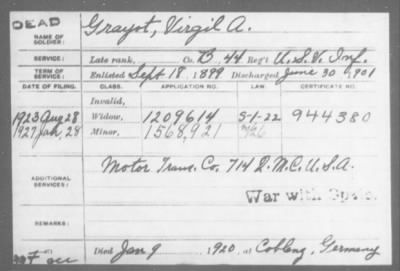 DEAD
NAME OF SOLDIER: Grayot, Virgil A.
SERVICE: Late rank, Co. B, 44 Reg't U.S.V. Inf.
TERM OF SERVICE: Enlisted Sept 18, 1899 Discharged June 30, 1901
DATE OF FILING. CLASS. APPLICATION NO. LAW. CERTIFICATE NO.
Invalid,
1923 Aug 28 Widow, 1209614 5-1-22 944380
1927 Jan, 28 Minor, 1568,921
ADDITIONAL SERVICES: Motor Trans. Co. 714 Q.M.C.U.S.A.
War with Spain.
REMARKS:
Died Jan 9, 1920, at Coblenz, Germany